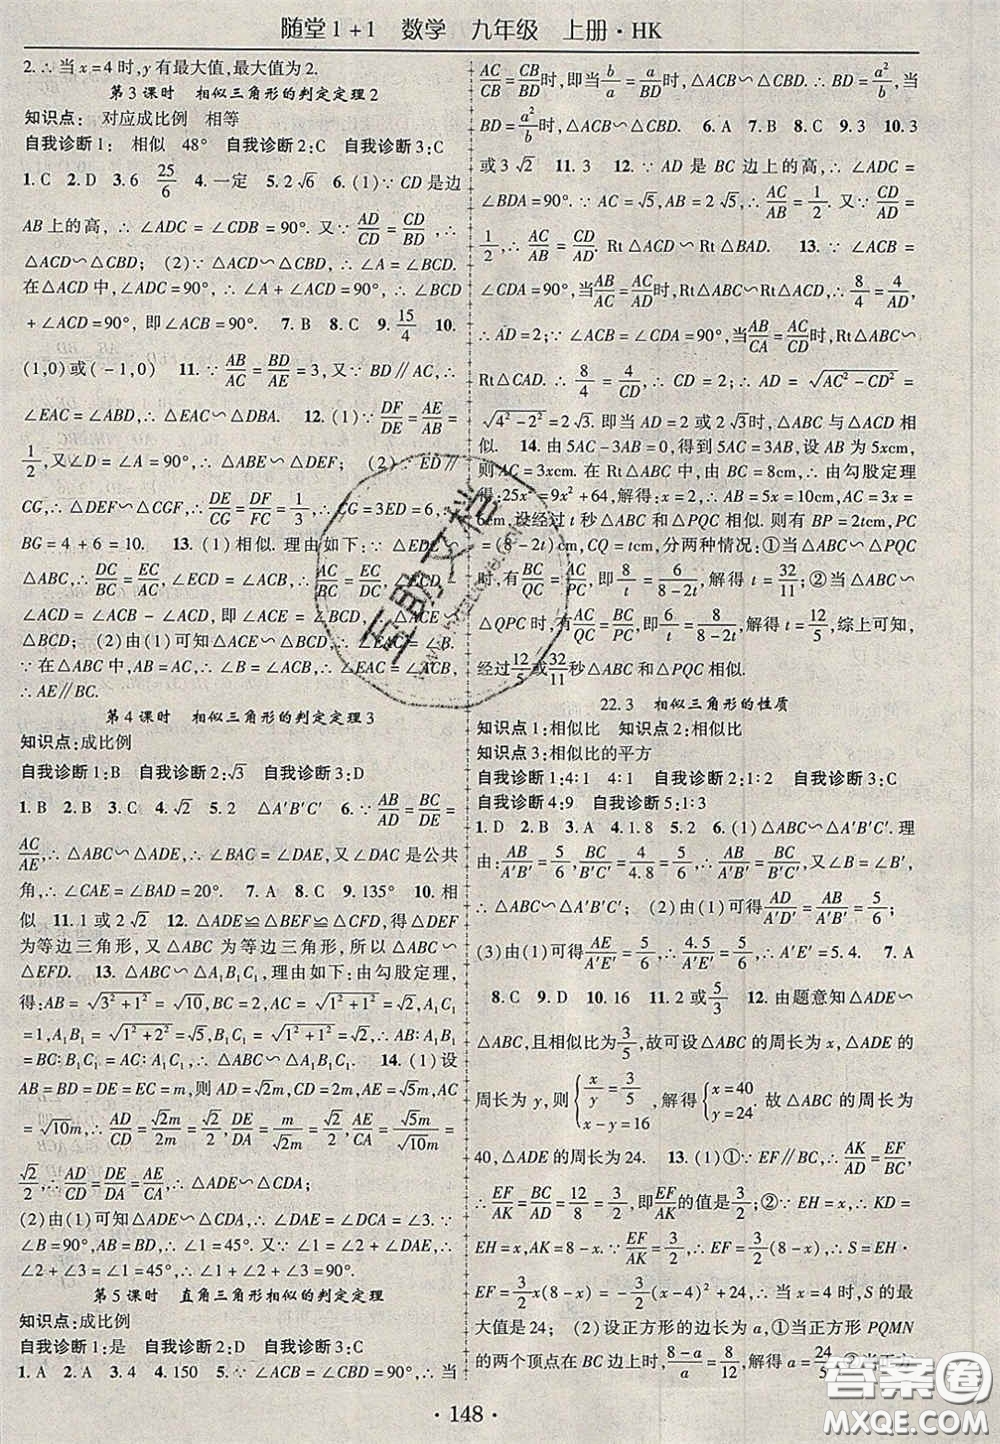 随堂1+1 数学 九年级 上册·HK
2.∴当x=4时,y有最大值,最大值为2.
第3课时 相似三角形的判定定理2
知识点: 对应成比例 相等
自我诊断1: 相似 48° 自我诊断2:C 自我诊断3:C
1.C 2.D 3.6 25/6 4.一定 5.2√6 6.(1)∵CD是边
AB上的高,∴∠ADC=∠CDB=90°.又∵AD/CD=CD/BD,∴
△ACD∽△CBD; (2)∵△ACD∽△CBD,∴∠A=∠BCD.
在△ACD中,∠ADC=90°,∴∠A+∠ACD=90°,∴∠BCD
+∠ACD=90°,即∠ACB=90°. 7.B 8.C 9.15/4 10.
(1,0)或(-1,0) 11.∵AB/AC=BD/AE=3,又∵BD∥AC,∴
∠EAC=∠ABD,∴△EAC∽△DBA. 12.(1)∵DF/AE=DE/AB=
1/2,又∠D=∠A,∴△ABE∽△DEF; (2)∵ED∥
CG,∴△DEF∽△CGF,∴DE/CG=DF/FC=1/3,∴CG=3ED=6,∴
BG=4+6=10. 13.(1)相似.理由如下:∵△EDC∽
△ABC,∴DC/BC=EC/AC,∠ECD=∠ACB,∴DC/EC=BC/AC,
∠ACD=∠ACB-∠ACD,即∠ACE=∠BCD,∴△ACE∽
△BCD; (2)由(1)可知△ACE∽△BCD,∴∠EAC=∠B.
∵在△ABC中,AB=AC,∴∠B=∠ACB,∴∠EAC=∠ACB,
∴AE∥BC.
第4课时 相似三角形的判定定理3
知识点:成比例
自我诊断1:B 自我诊断2:√3 自我诊断3:D
1.B 2.B 3.C 4.√2 5.2 △A′B′C′ 6.∵AB/AD=BC/DE=
AC/AE,∴△ABC∽△ADE,∴∠BAC=∠DAE,又∠DAC是公共
角,∴∠CAE=∠BAD=20°. 7.A 8.C 9.135° 10.相
似 11.1或2√2 12.△ADE≌△BEF≌△CFD,得△DEF
为等边三角形,又△ABC为等边三角形,所以△ABC∽
△EFD. 13.△ABC∽△A₁B₁C₁,理由如下:由勾股定理,
得:AB=√(3²+1²)=√10,BC=2,AC=√(1²+1²)=√2,A₁C₁
=1,A₁B₁=√(1²+2²)=√5,B₁C₁=√(1²+1²)=√2,∴AB∶A₁B₁
=BC∶B₁C₁=AC∶A₁C₁,∴△ABC∽△A₁B₁C₁. 14.(1)设
AB=BD=DE=EC=m,则AD=√2m,CD=2m,AE=√5m,AC=
√10m,∴AD/CD=√2m/2m=√2/2,DE/DA=m/√2m=√2/2,EA/CA=√5m/√10m=
√2/2,∴AD/CD=DE/DA=EA/AC,∴△ADE∽△CDA;
(2)由(1)可知△ADE∽△CDA,∴∠DAE=∠DCA=∠3.∵
∠B=90°,AB=BD,∴∠1=45°.又∵∠2+∠DAE=∠1,∴
∠2+∠3=∠1=45°,∴∠1+∠2+∠3=90°.
第5课时 直角三角形相似的判定定理
知识点:成比例
自我诊断1:是 自我诊断2:D 自我诊断3:D
1.A 2.A 3.4 4.150 5.∵∠ACB=∠CBD=90°,∴当
AC/CB=CB/BD时,即当b/a=a/BD时,△ACB∽△CBD.∴BD=a²/b,当
BD=a²/b时,△ACB∽△CBD. 6.A 7.B 8.C 9.3 10.3
或3√2 11.3 12.∵AD是BC边上的高,∴∠ADC=
∠BDA=90°.∵AC=√5,AB=2√5,∴AC/AB=1/2.又∵CD/AD=
1/2,∴AC/AB=CD/AD.∴Rt△ACD∽Rt△BAD. 13.∵∠ACB=
∠CDA=90°,当AB/AC=AC/AD时,Rt△ABC∽Rt△ACD,∴8/4=4/AD,
∴AD=2;∵∠ACB=∠CDA=90°,当AB/CA=AC/CD时,Rt△ABC∽
Rt△CAD.∴8/4=4/CD,∴CD=2,∴AD=√(AC²-CD²)=
√(4²-2²)=2√3.即当AD=2或2√3时,△ABC与△ACD相
似. 14.由5AC-3AB=0,得到5AC=3AB,设AB为5xcm,
则AC=3xcm.在Rt△ABC中,由BC=8cm,由勾股定理
得:25x²=9x²+64,解得:x=2,∴AB=5x=10cm,AC=3x=
6cm.设经过t秒△ABC和△PQC相似.则有BP=2tcm,PC
=(8-2t)cm,CQ=tcm,分两种情况:①当△ABC∽△PQC
时,有BC/QC=AC/PC,即8/t=6/(8-2t),解得t=32/11;②当△ABC∽
△QPC时,有AC/QC=BC/PC,即6/t=8/(8-2t),解得t=12/5,综上可知,
经过12/5或32/11秒△ABC和△PQC相似.
22.3 相似三角形的性质
知识点1:相似比 知识点2:相似比
知识点3:相似比的平方
自我诊断1:4∶1 4∶1 自我诊断2:1∶2 自我诊断3:C
自我诊断4:9 自我诊断5:1∶3
1.D 2.B 3.A 4.1.8 5.2 6.(1)△ABC∽△A′B′C′.理
由:AB/A′B′=5/6,BC/B′C′=4/4.8=5/6,∴AB/A′B′=BC/B′C′,又∵∠B=∠B′,
∴△ABC∽△A′B′C′; (2)由(1)可得AD/A′D′=AB/A′B′=5/6;
(3)由(1)可得AE/A′E′=5/6,∴4.5/A′E′=5/6,∴A′E′=5.4. 7.A
8.C 9.D 10.16 11.4或5/3 12.由题意知△ADE∽
△ABC,且相似比为3/5,故可设△ABC的周长为x,△ADE的
周长为y,则{y/x=3/5 x-y=16,解得{x=40 y=24.故△ABC的周长为
40,△ADE的周长为24. 13.(1)①∵EF∥BC,∴AK/AD=EF/BC,
∴EF/AK=BC/AD=12/8=3/2,即EF/AK的值是3/2;②∵EH=x,∴KD=
EH=x,AK=8-x.∵EF/AK=3/2,∴EF=3/2(8-x),∴S=EH·
EF=3/2x(8-x)=-3/2(x-4)²+24,∴当x=4时,S的最
大值是24; (2)设正方形的边长为a,①当正方形PQMN
的两个顶点在BC边上时,(8-a)/8=a/12,解得a=24/5.②当正方
·148·
互助文档
答案圈
MXQE.COM